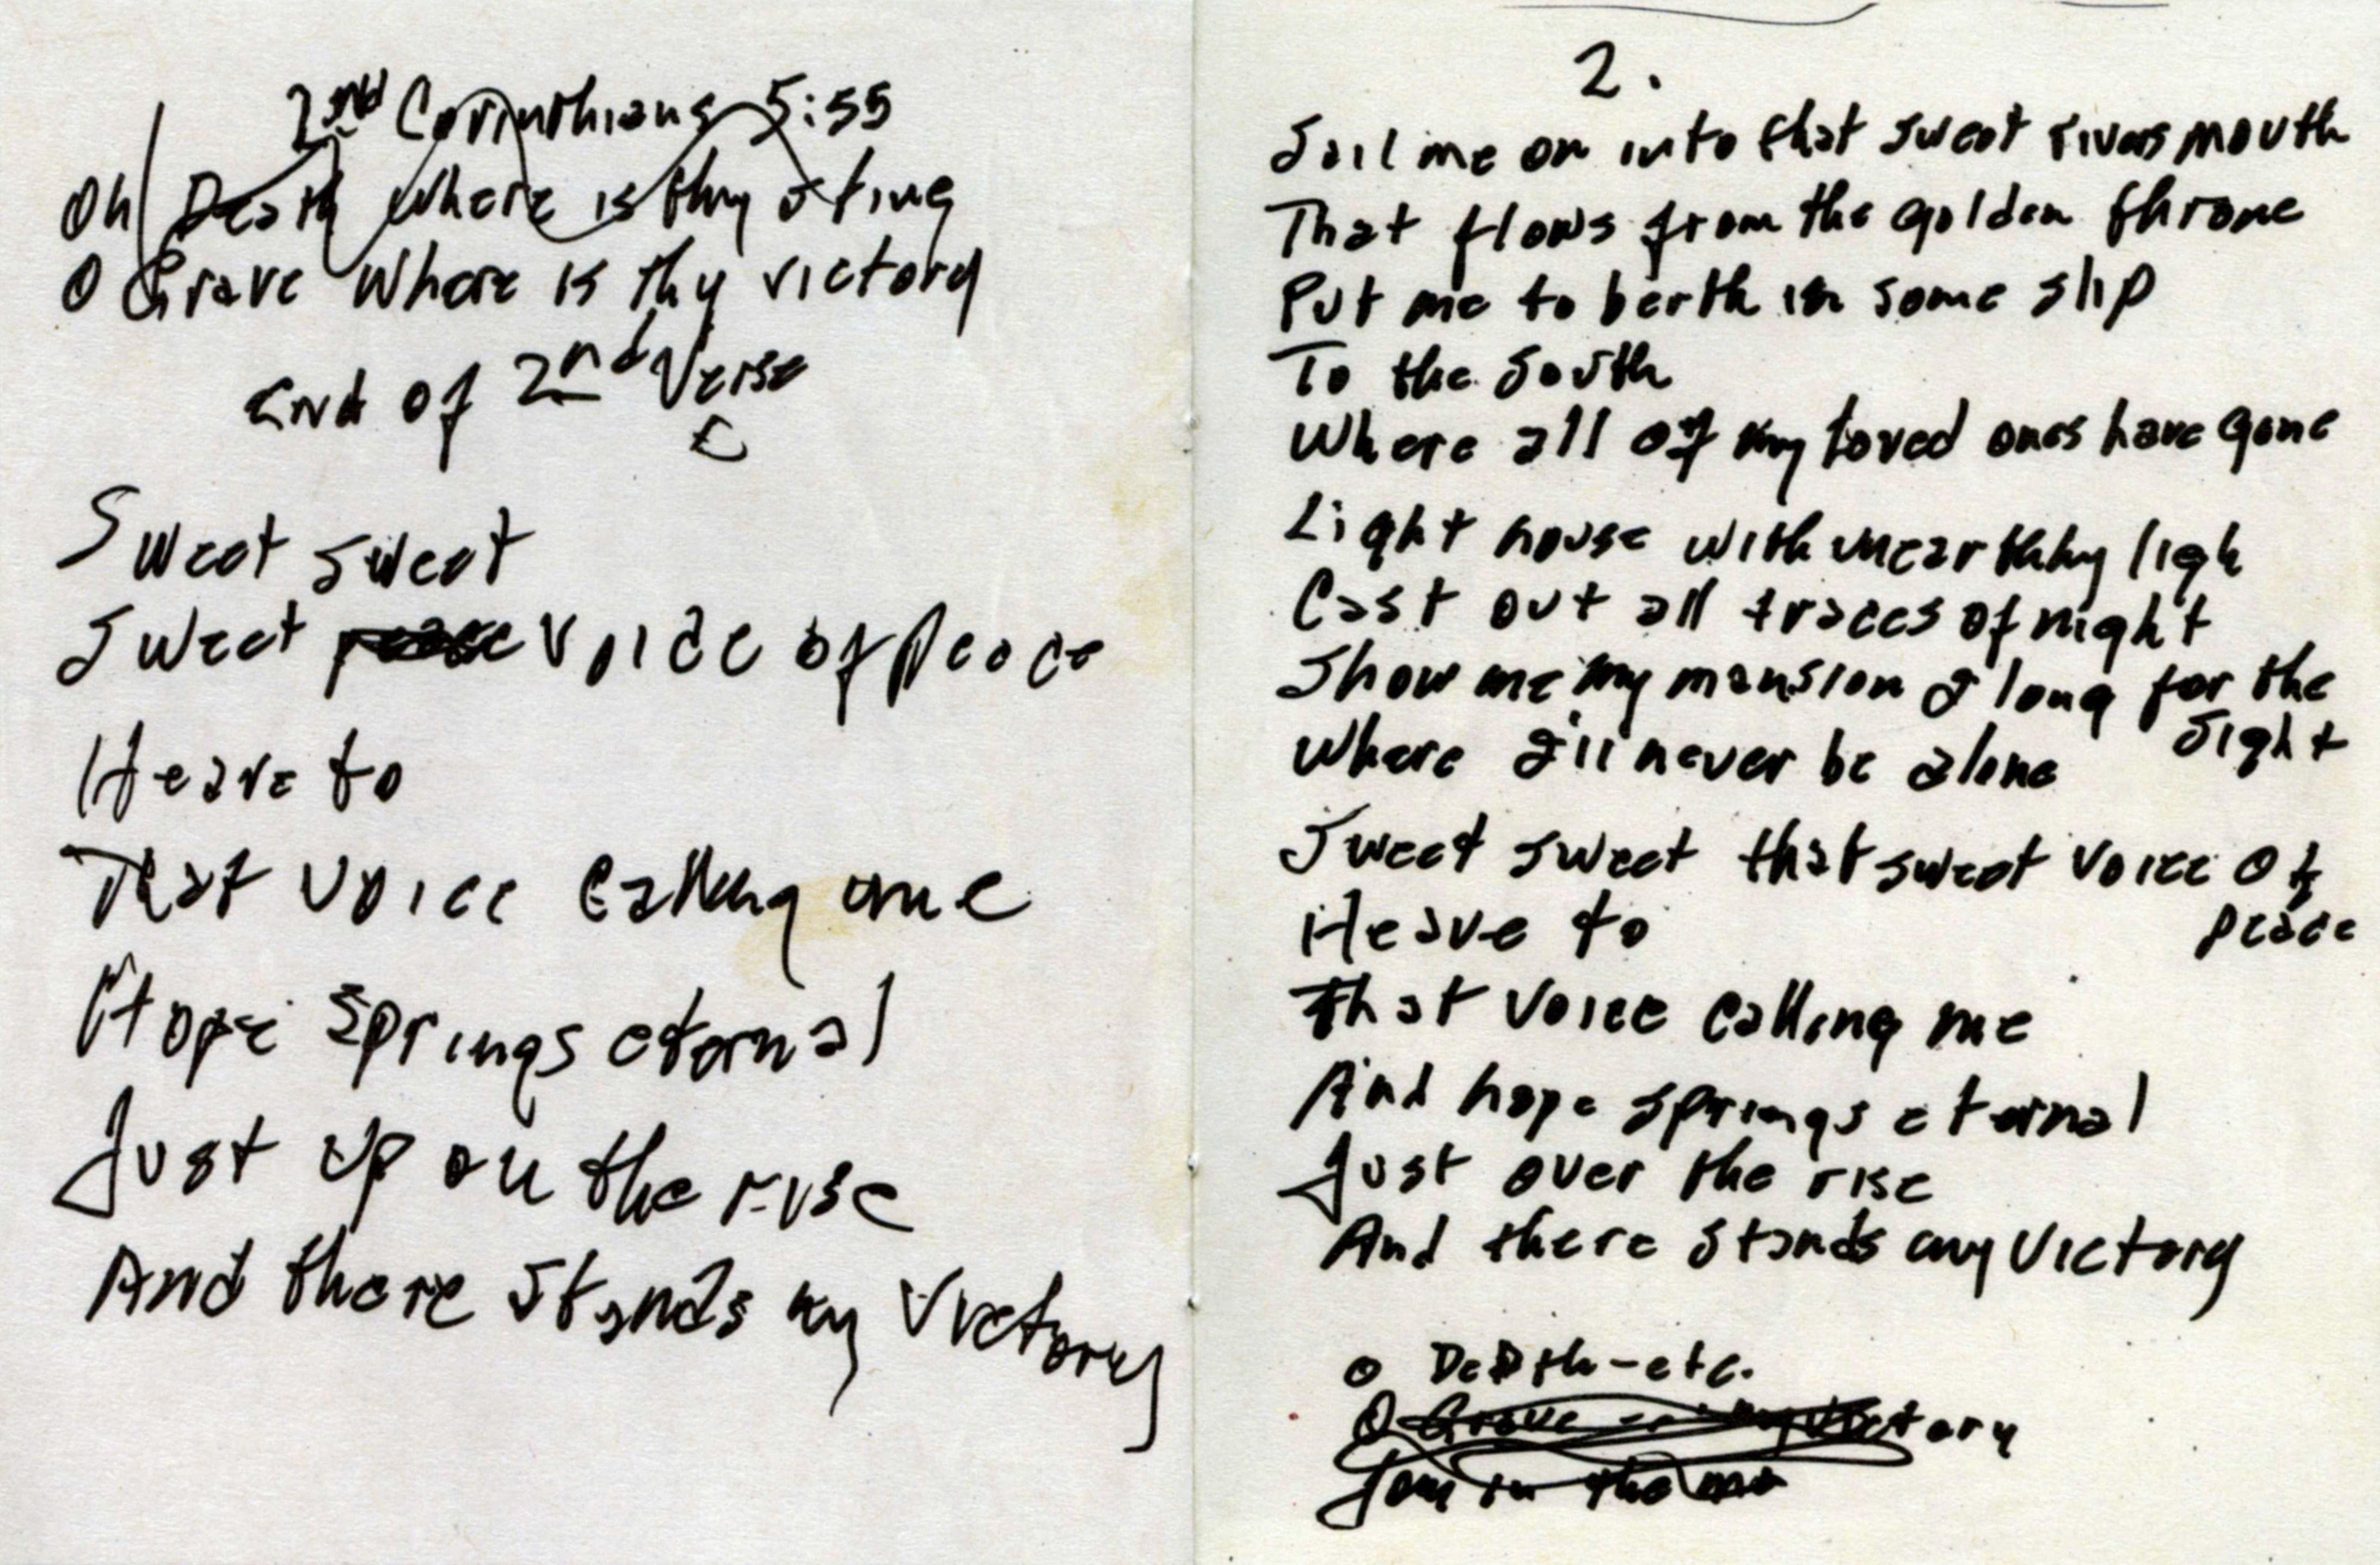 2nd Corinthians 5:55
Oh Death Where is thy sting
O Grave Where is thy victory
End of 2nd Verse
Sweet sweet
Sweet peace voice of Peace
Heave to
That voice calling me
Hope springs eternal
Just up on the rise
And there stands my Victory
2.
Sail me on into that sweet rivers mouth
That flows from the golden throne
Put me to berth in some slip
To the South
Where all of my loved ones have gone
Light house with unearthly ligh
Cast out all traces of night
Show me my mansion I long for the
sight
Where I'll never be alone
Sweet sweet that sweet voice of
peace
Heave to
That voice calling me
And hope springs eternal
Just over the rise
And there stands my Victory
O Death-etc.
O Grave victory
in the